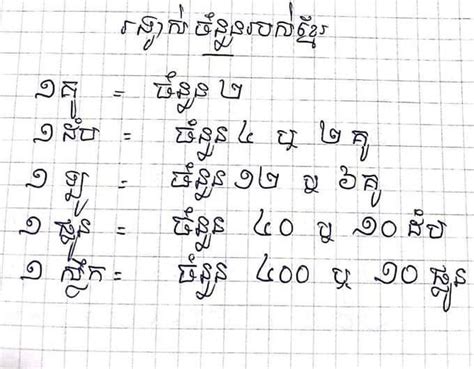 រង្វាស់ ចំនួនរបស់ខ្មែរ
១គូ = ចំនួន ២
១ដំប = ចំនួន ៤ ឬ ២ គូ
១ ឡូ = ចំនួន ១២ ឬ ៦គូ
១ ផ្លូន = ចំនួន ៤០ ឬ ១០ ដំប
១ ស្លឹក = ចំនួន ៤០០ ឬ ១០ ផ្លូន